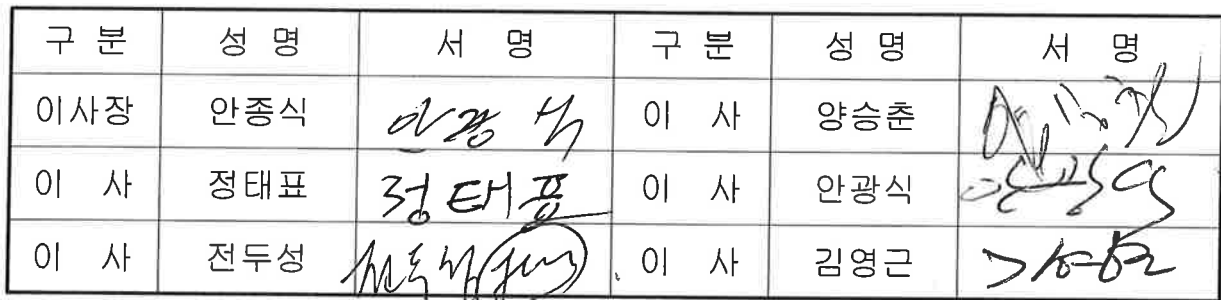 구 분 성 명 서 명 구 분 성 명 서 명
이사장 안종식 이 사 양승춘
이 사 정태표 정태표 이 사 안광식
이 사 전두성 이 사 김영근